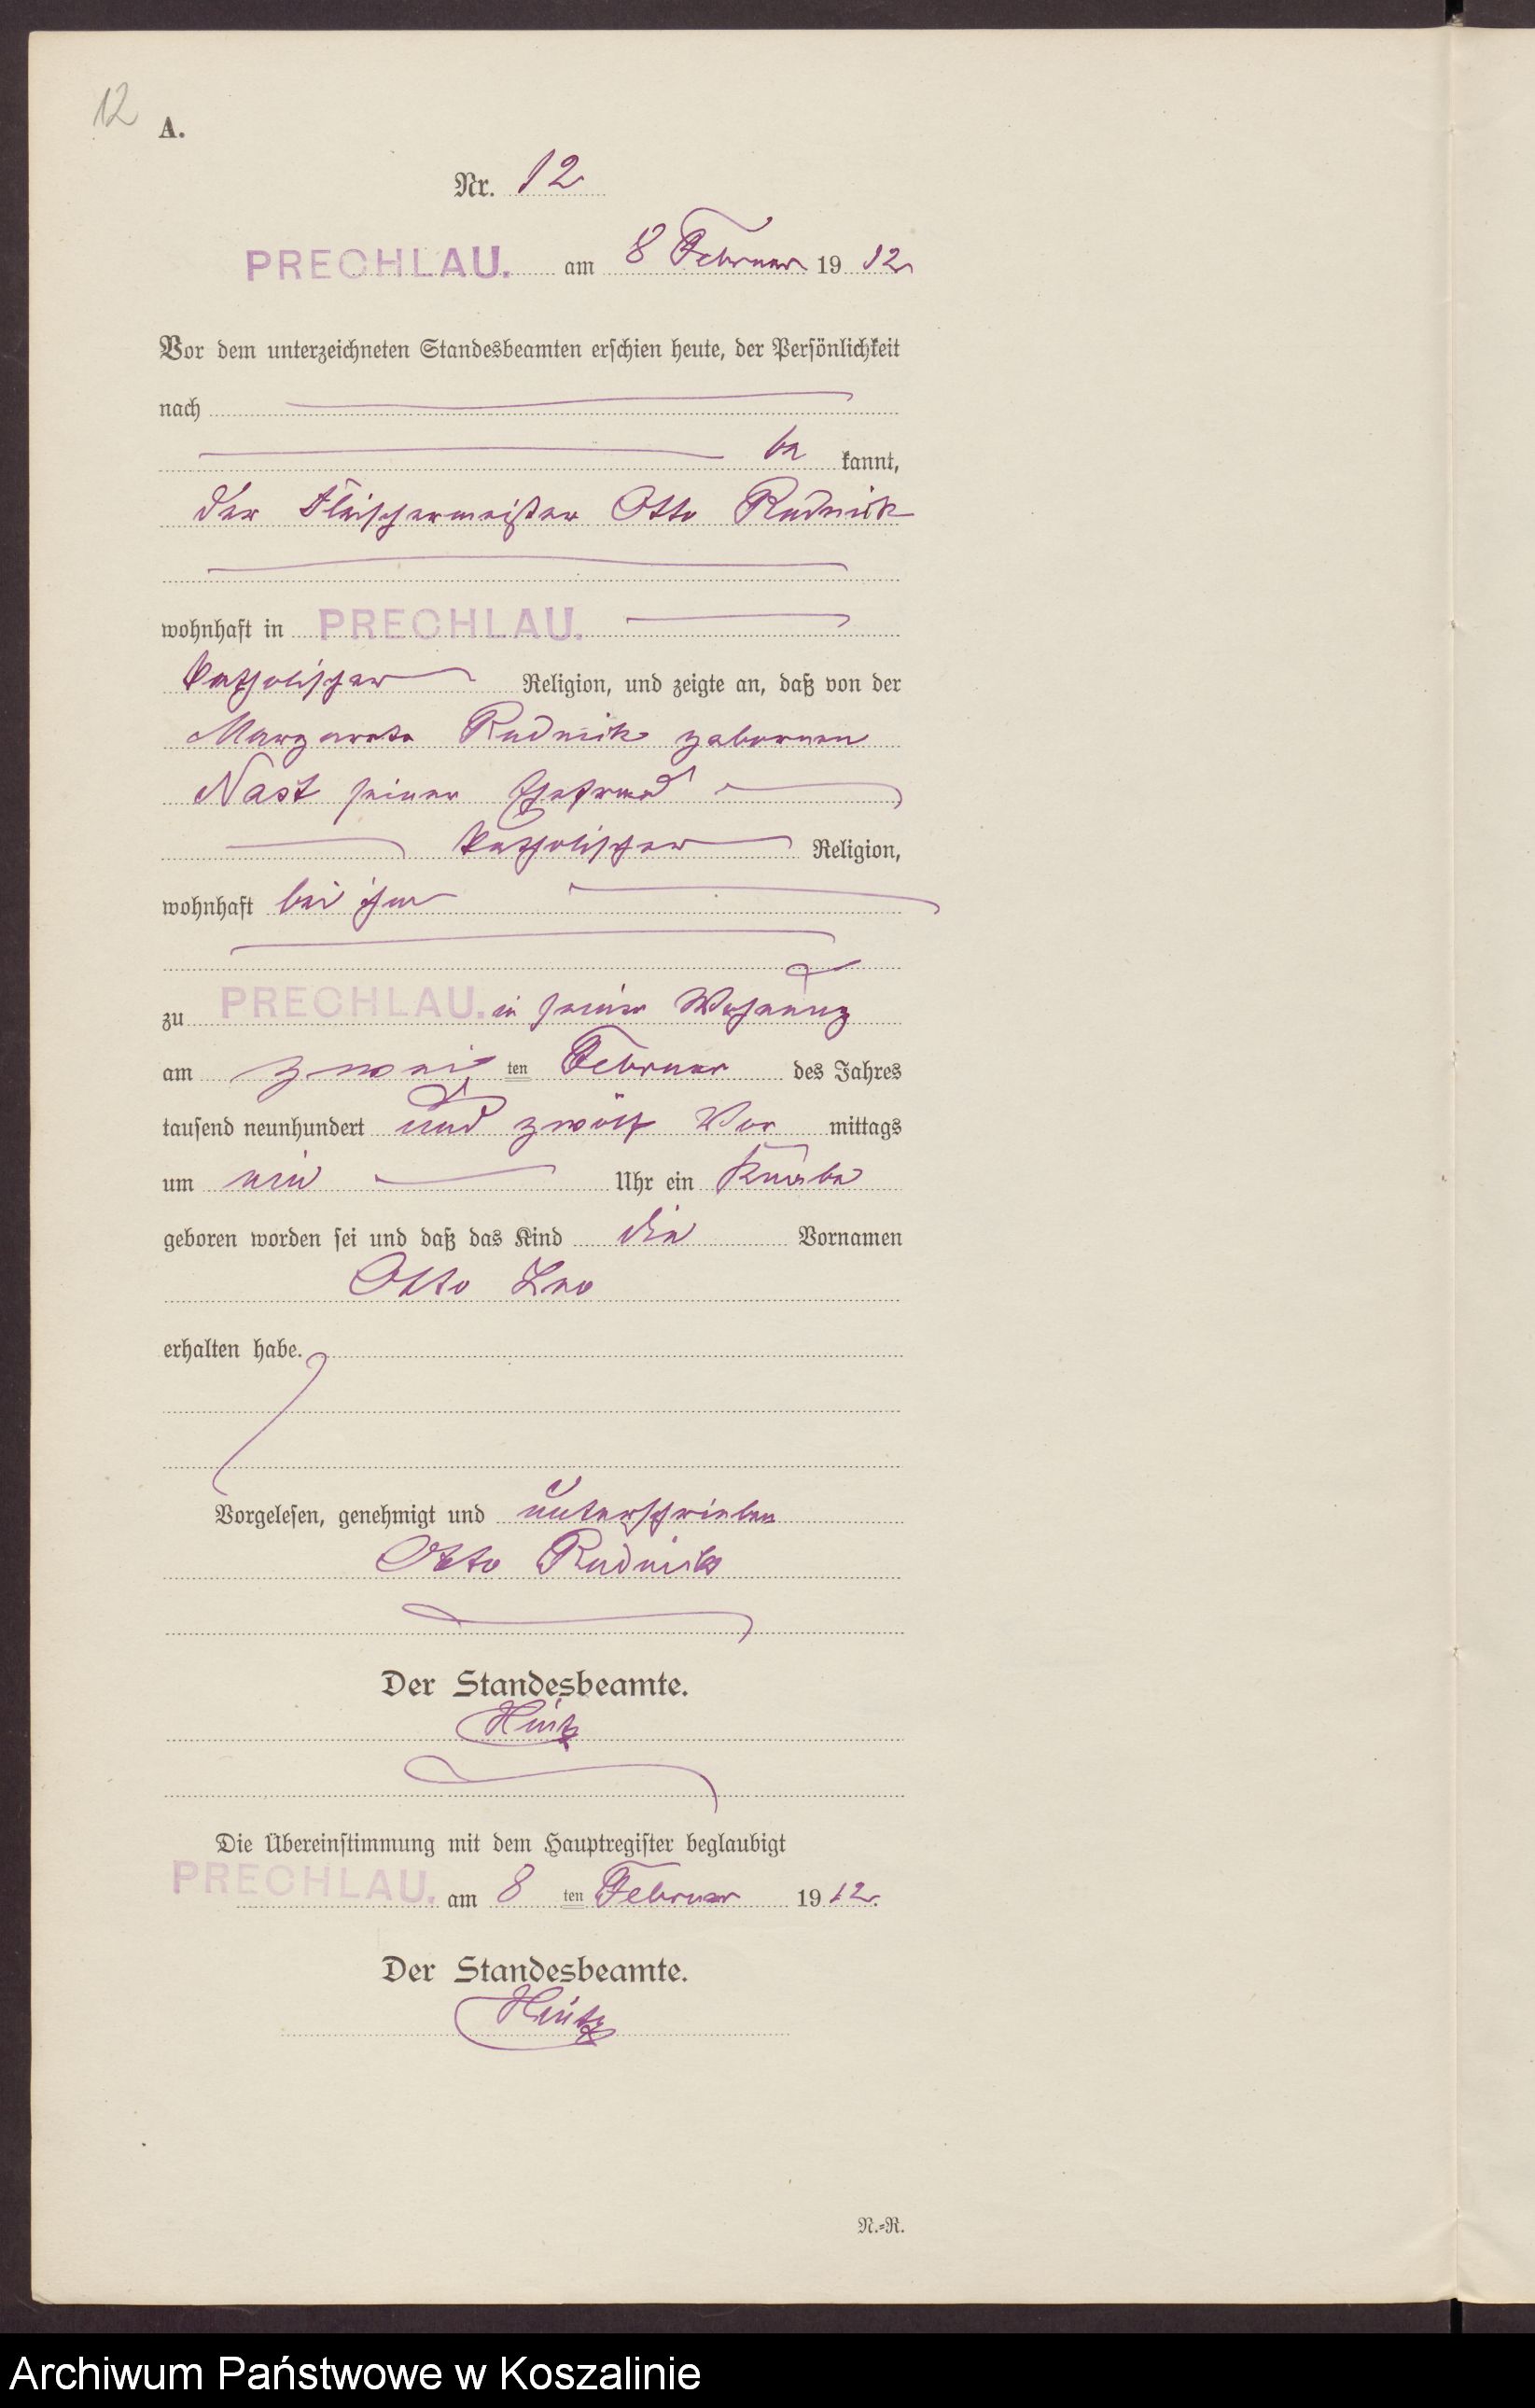 12
A.
Nr. 12
PRECHLAU. am 8 Februar 19 12
Vor dem unterzeichneten Standesbeamten erschien heute, der Persönlichkeit
nach
be kannt,
der Fleischermeister Otto Rudnick
wohnhaft in PRECHLAU.
katholischer Religion, und zeigte an, daß von der
Margarete Rudnick geborenen
Nast seiner Ehefrau
katholischer Religion,
wohnhaft bei ihm
zu PRECHLAU. in seiner Wohnung
am zwei ten Februar des Jahres
tausend neunhundert und zwölf Vor mittags
um ein Uhr ein Knabe
geboren worden sei und daß das Kind die Vornamen
Otto Leo
erhalten habe.
Vorgelesen, genehmigt und unterschrieben
Otto Rudnick
Der Standesbeamte.
Hintz
Die Übereinstimmung mit dem Hauptregister beglaubigt
PRECHLAU. am 8 ten Februar 19 12.
Der Standesbeamte.
Hintz
N.-R.
Archiwum Państwowe w Koszalinie